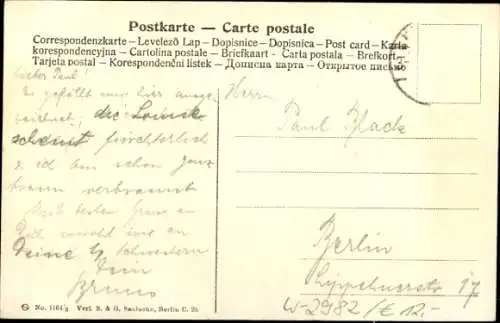 Postkarte — Carte postale
Correspondenzkarte – Levelező Lap – Dopisnice – Dopisnica – Post card – Karta
korespondencyjna – Cartolina postale – Briefkaart – Carta postala – Brefkort
Tarjeta postal – Korespondenční listek – Дописна карта – Открытое письмо
Lieber Paul!
Es gefällt mir hier ausge-
zeichnet; die Sonne
scheint fürchterlich
u ich bin schon ganz
braun verbrannt
Mit besten Gruss an
Dich sowohl wie an
Deine Schwestern
Dein
Bruno
Herrn
Paul Black
Berlin
17
W-2982/€ 12.-
No. 1164
Verl. S. & G. Saulsohn, Berlin C. 25